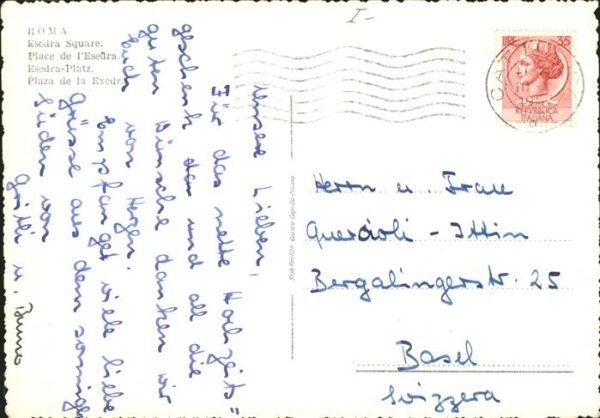 ROMA
Esedra Square.
Place de l'Esedra.
Esedra-Platz.
Plaza de la Exedra.
I-
LIRE 35
REPVBBLICA
ITALIANA
Unsere Lieben,
Für das nette Hochzeits=
geschenk den und all die
guten Wünsche danken wir
Euch von Herzen.
Empfanget viele liebe
Grüsse aus dem sonnigen
Süden von
u. Bruno
Herrn u. Frau
Quercioli - Ittin
Bergalingerstr. 25
Basel
Svizzera